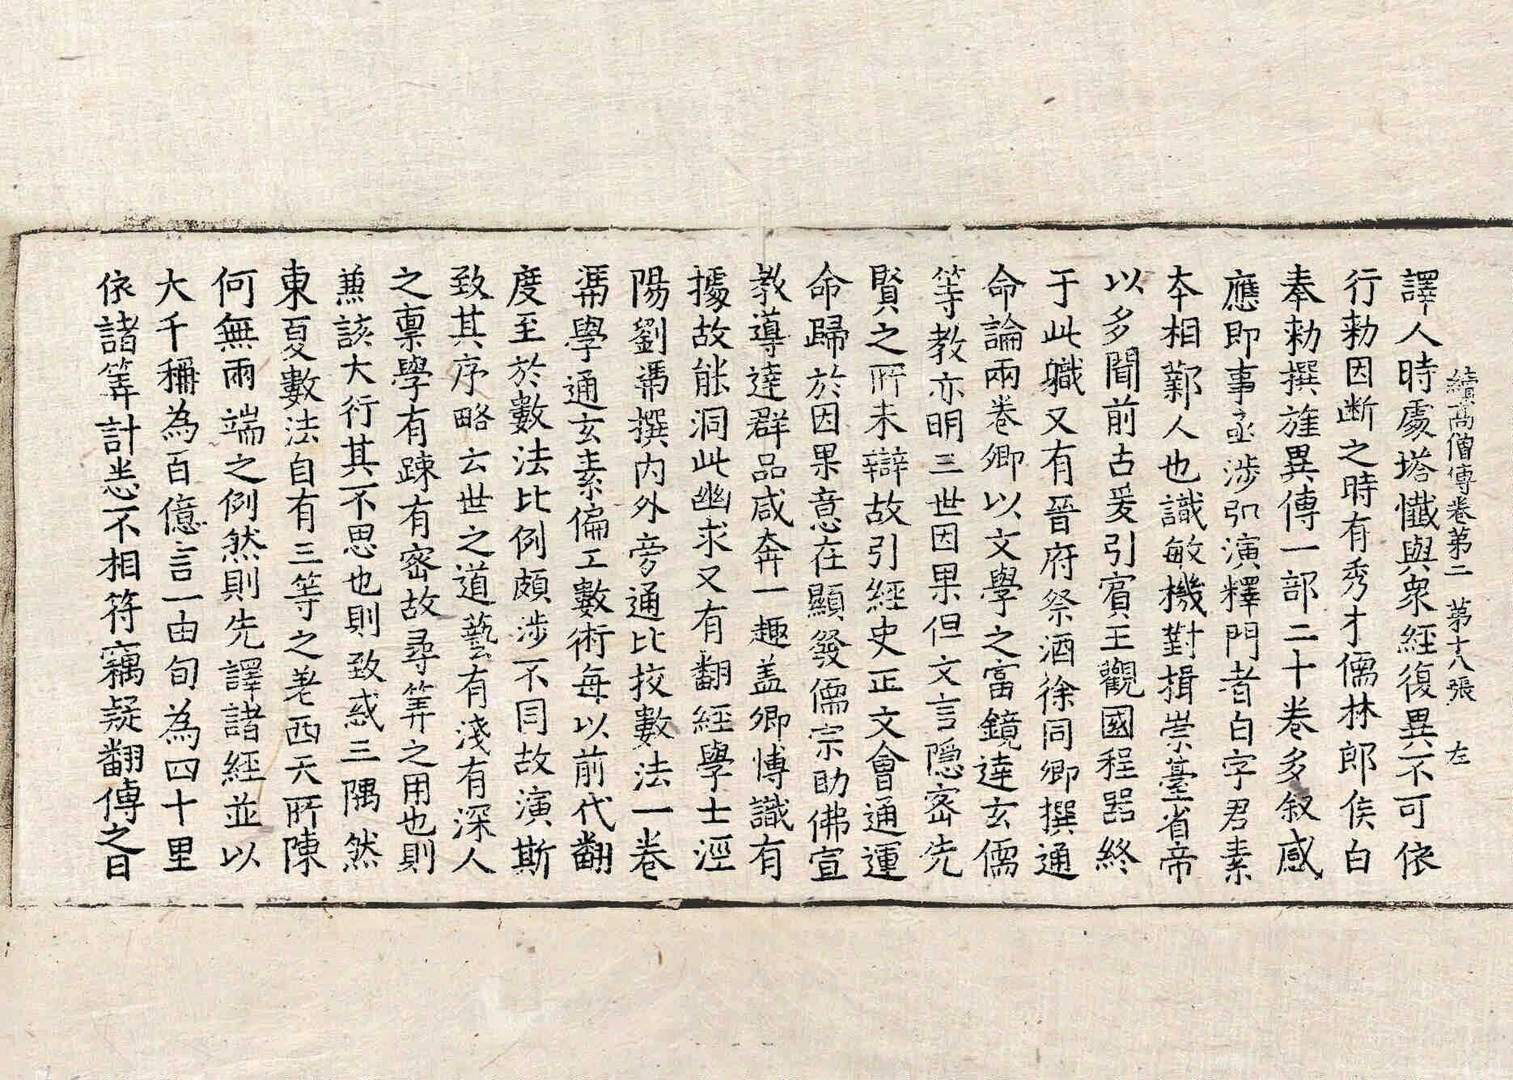 續高僧傳卷第二　第十八張　左
譯人時處塔懺與衆經復異不可依
行勅因斷之時有秀才儒林郎侯白
奉勅撰旌異傳一部二十卷多叙感
應即事亟涉弘演釋門者白字君素
本相鄴人也識敏機對揖崇臺省帝
以多聞前古爰引賓王觀國程器終
于此軄又有晉府祭酒徐同卿撰通
命論兩卷卿以文學之富鏡達玄儒
等教亦明三世因果但文言隱密先
賢之所未辯故引經史正文會通運
命歸於因果意在顯發儒宗助佛宣
教導達群品咸奔一趣盖卿博識有
據故能洞此幽求又有翻經學士涇
陽劉馮撰內外旁通比挍數法一卷
馮學通玄素偏工數術每以前代翻
度至於數法比例頗涉不同故演斯
致其序略云世之道藝有淺有深人
之稟學有踈有密故尋筭之用也則
兼該大行其不思也則致惑三隅然
東夏數法自有三等之差西天所陳
何無兩端之例然則先譯諸經並以
大千稱為百億言一由旬為四十里
依諸筭計悉不相符竊疑翻傳之日